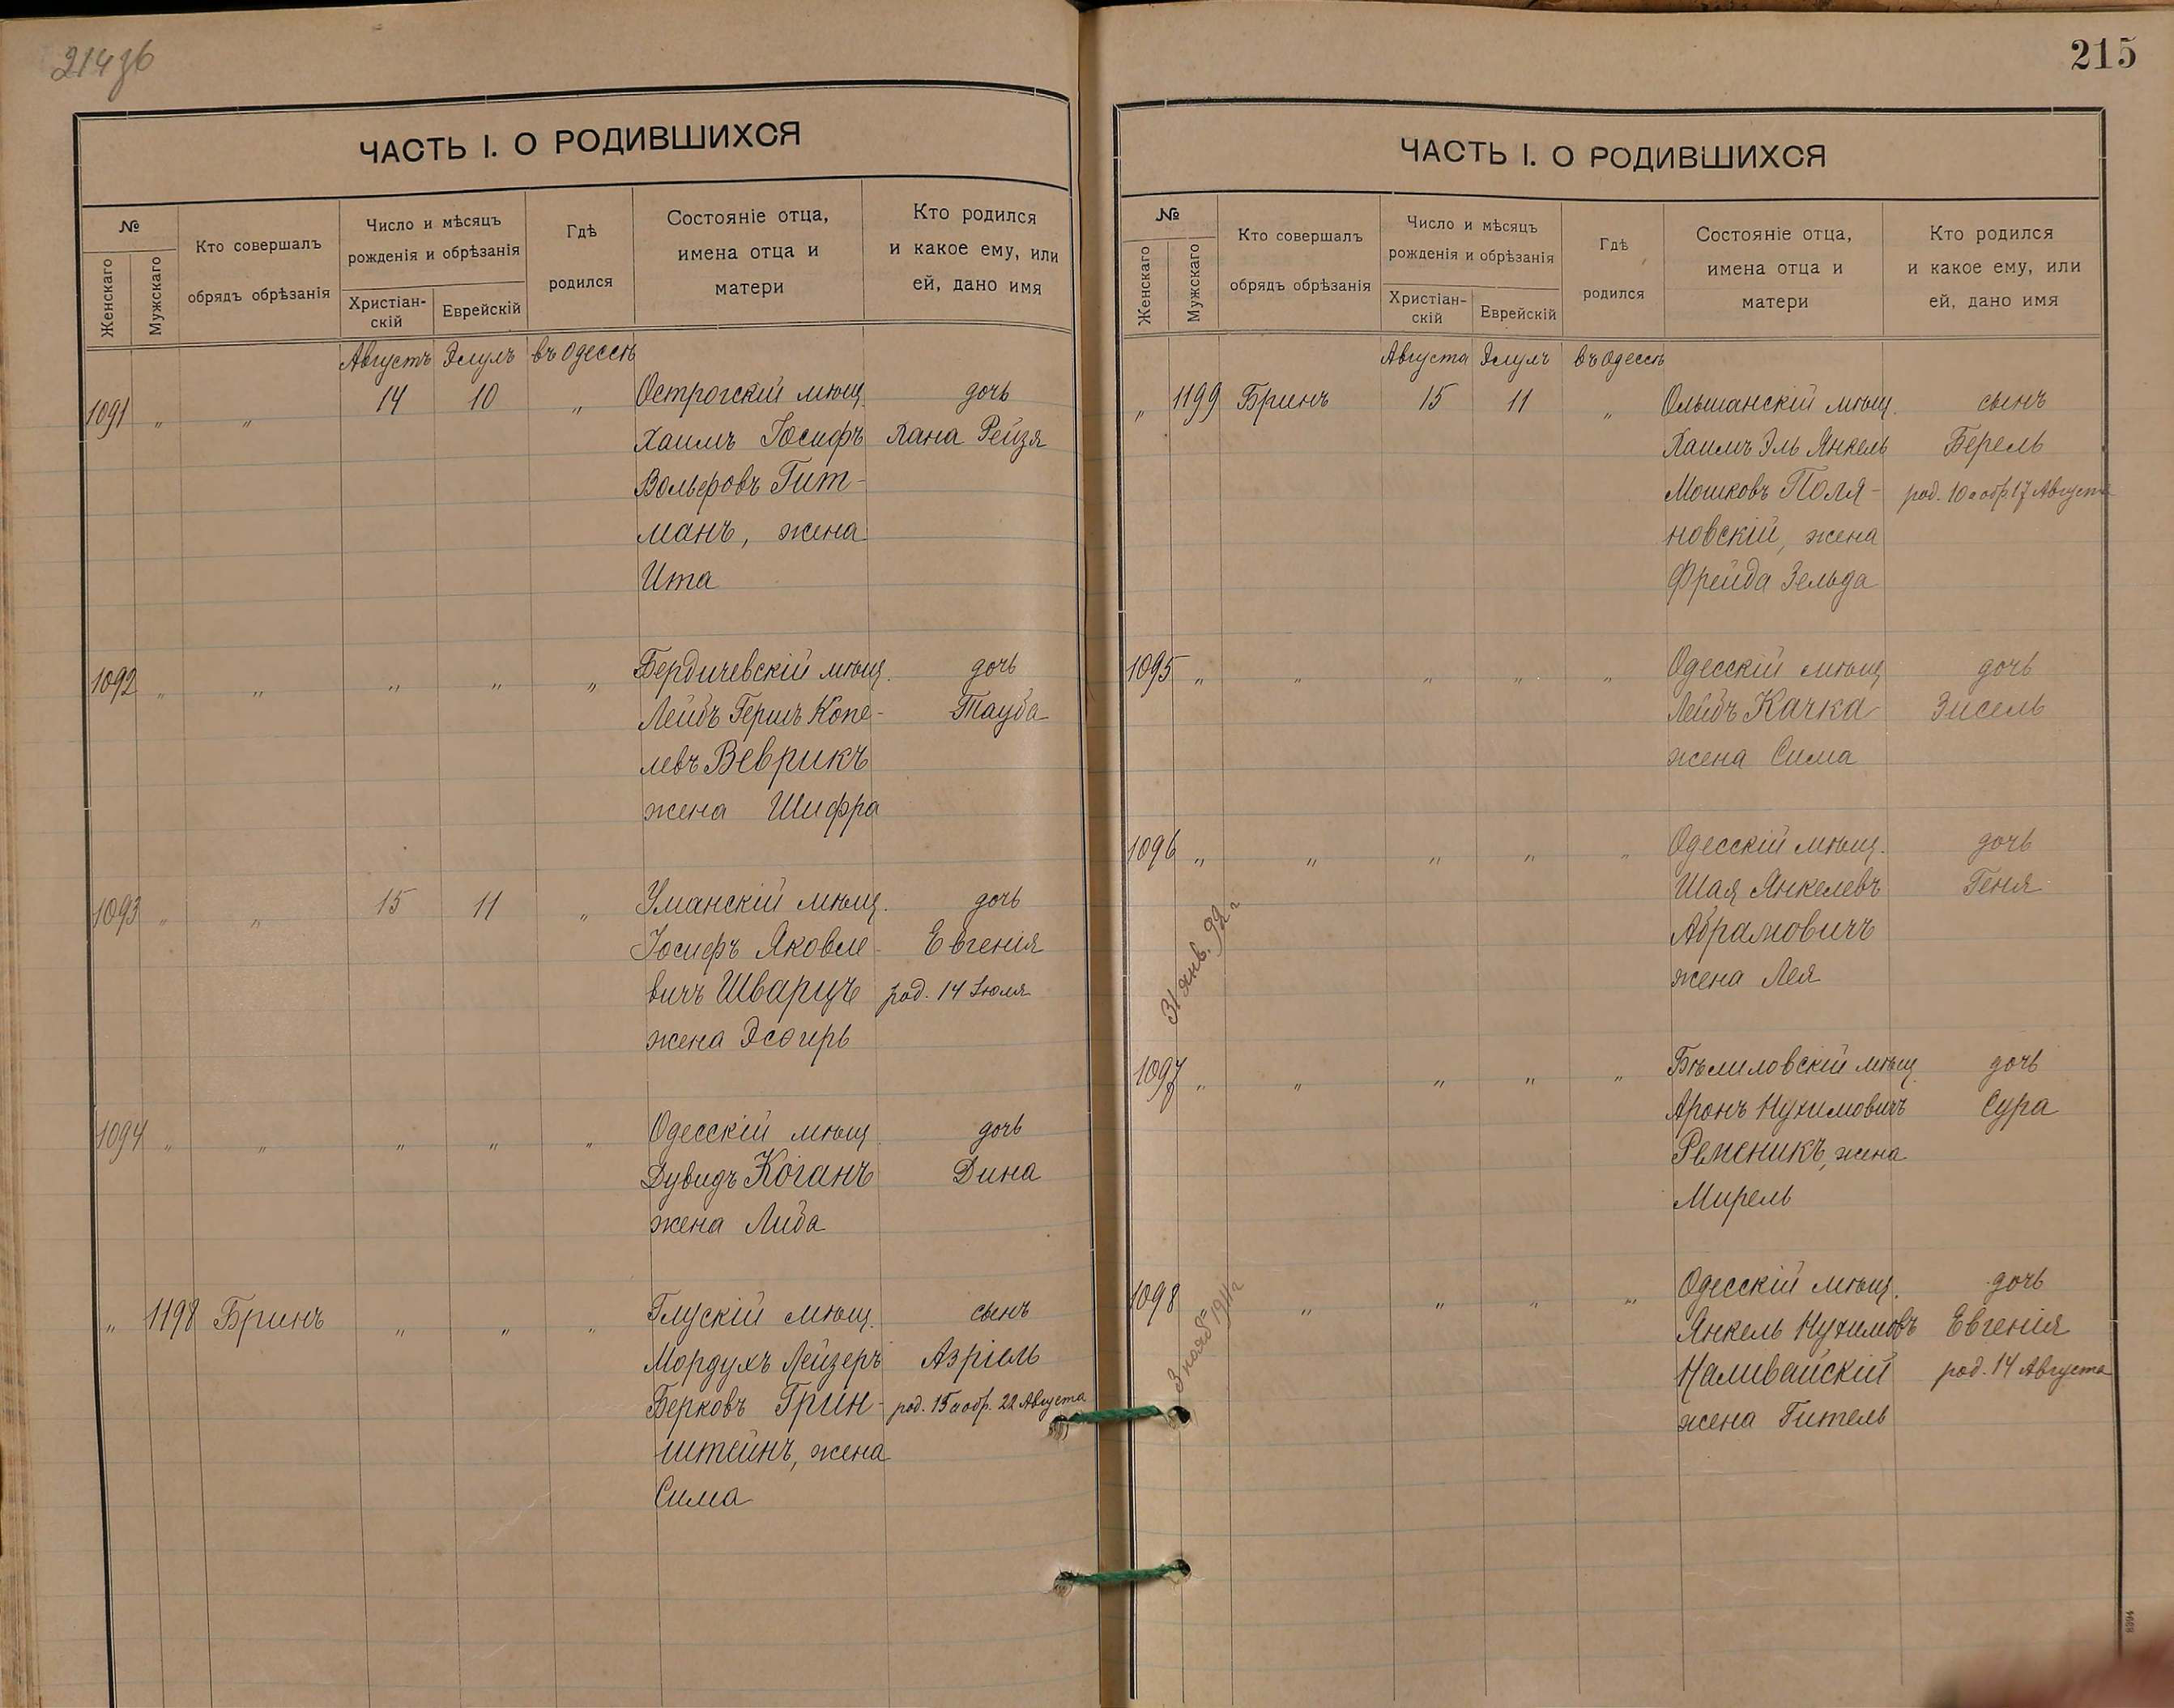 214 об
ЧАСТЬ I. О РОДИВШИХСЯ
№
Женскаго
Мужскаго
Кто совершалъ
обрядъ обрѣзанія
Число и мѣсяцъ
рожденія и обрѣзанія
Христіан-
скій
Еврейскій
Гдѣ
родился
Состояніе отца,
имена отца и
матери
Кто родился
и какое ему, или
ей, дано имя
Августъ Элулъ въ Одессѣ
1091 „ „ 14 10 „ Острогскій мѣщ. дочь
Хаимъ Іосифъ Хана Рейзя
Вольфовъ Гит-
манъ, жена
Ита
1092 „ „ „ „ „ Бердичевскій мѣщ. дочь
Лейбъ Гершъ Копе- Тауба
левъ Веврикъ
жена Шифра
1093 „ „ 15 11 „ Уманскій мѣщ. дочь
Іосифъ Яковле- Евгенія
вичъ Шварцъ род. 14 Іюля
жена Эсѳирь
1094 „ „ „ „ „ Одесскій мѣщ. дочь
Дувидъ Коганъ Дина
жена Либа
„ 1198 Бринъ „ „ „ Глускій мѣщ. сынъ
Мордухъ Лейзеръ Азріель
Берковъ Грин- род. 15 и обр. 22 Августа
штейнъ, жена
Сима
215
ЧАСТЬ I. О РОДИВШИХСЯ
№
Женскаго
Мужскаго
Кто совершалъ
обрядъ обрѣзанія
Число и мѣсяцъ
рожденія и обрѣзанія
Христіан-
скій
Еврейскій
Гдѣ
родился
Состояніе отца,
имена отца и
матери
Кто родился
и какое ему, или
ей, дано имя
Августа Элулъ въ Одессѣ
„ 1199 Бринъ 15 11 „ Ольшанскій мѣщ. сынъ
Хаимъ Эль Янкель Берель
Мошковъ Поля- род. 10 и обр. 17 Августа
новскій, жена
Фрейда Зельда
1095 „ „ „ „ „ Одесскій мѣщ. дочь
Лейбъ Качка Зисель
жена Сима
1096 „ „ „ „ „ Одесскій мѣщ. дочь
Шая Янкелевъ Геня
Абрамовичъ
жена Лея
31 янв. 92 г.
1097 „ „ „ „ „ Бѣлиловскій мѣщ. дочь
Аронъ Нухимовичъ Сура
Ременикъ, жена
Мирель
1098 „ „ „ „ Одесскій мѣщ. дочь
Янкель Нухимовъ Евгенія
Наливайскій род. 14 Августа
жена Гитель
3 нояб 1911 г
8394